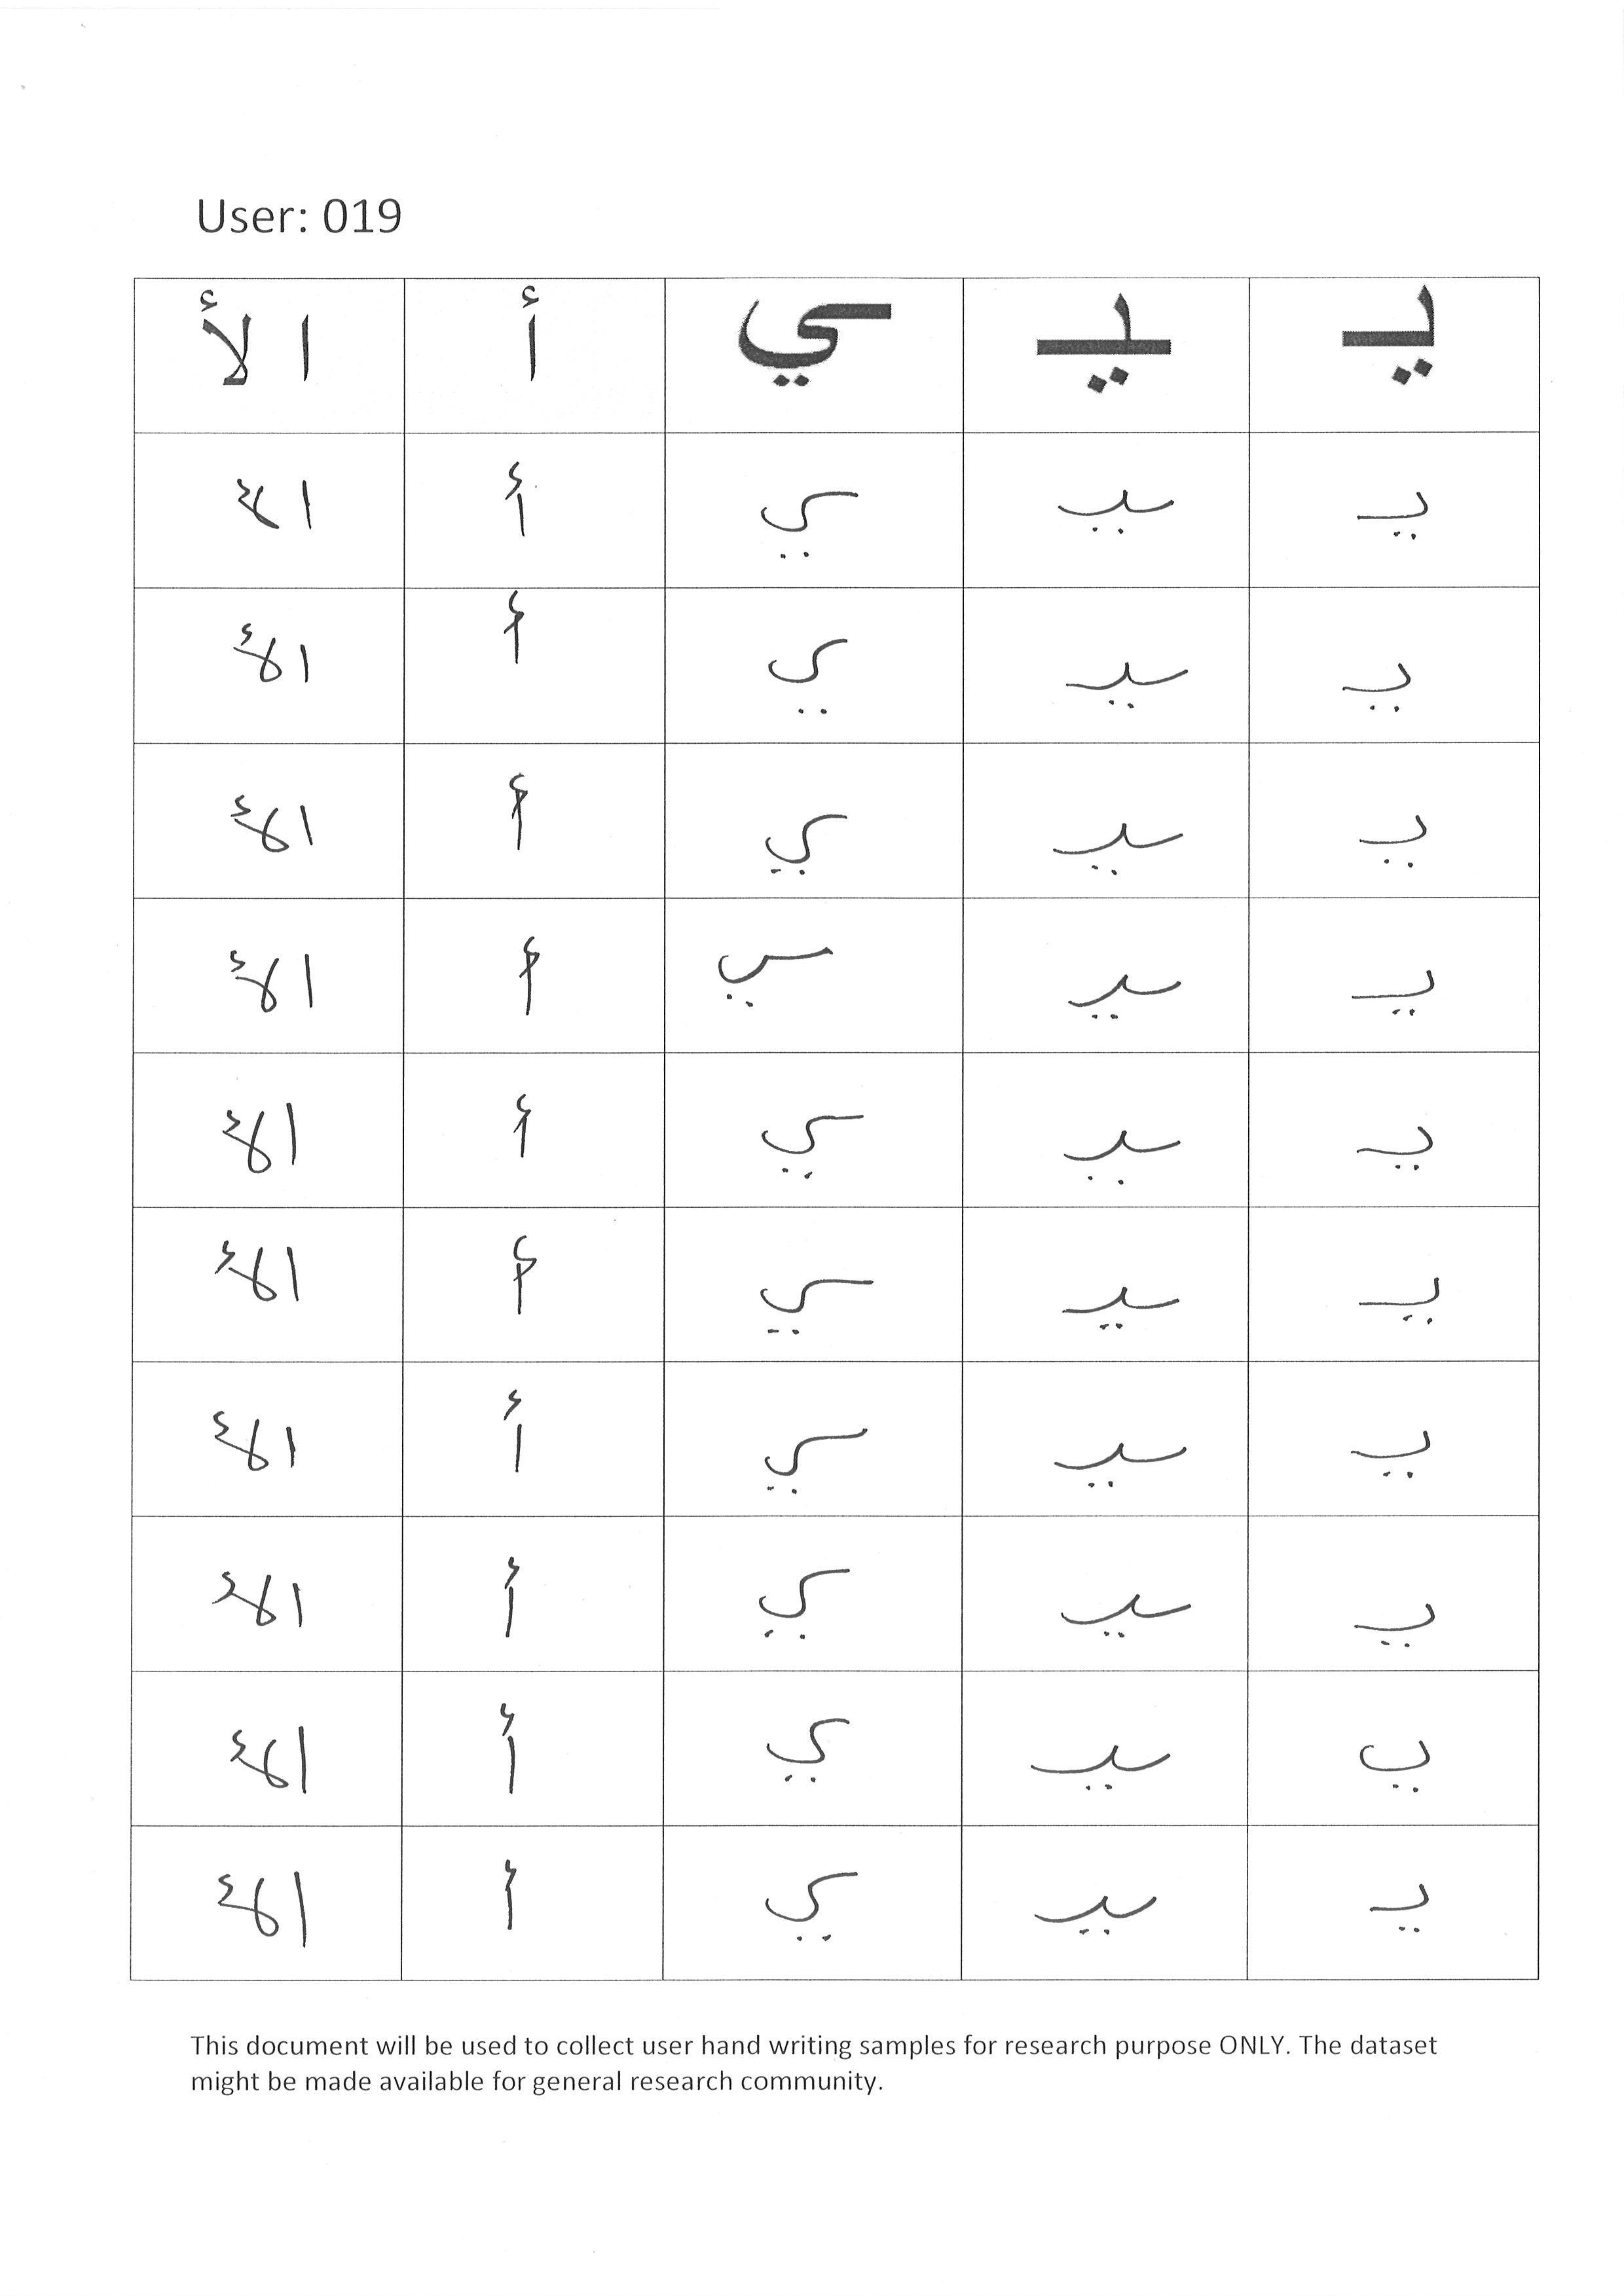 User: 019
يـ ـيـ ـي أ ا لأ
يـ ـيـ ـي أ ا لأ
يـ ـيـ ـي أ ا لأ
يـ ـيـ ـي أ ا لأ
يـ ـيـ ـي أ ا لأ
يـ ـيـ ـي أ ا لأ
يـ ـيـ ـي أ ا لأ
يـ ـيـ ـي أ ا لأ
يـ ـيـ ـي أ ا لأ
يـ ـيـ ـي أ ا لأ
يـ ـيـ ـي أ ا لأ
This document will be used to collect user hand writing samples for research purpose ONLY. The dataset
might be made available for general research community.